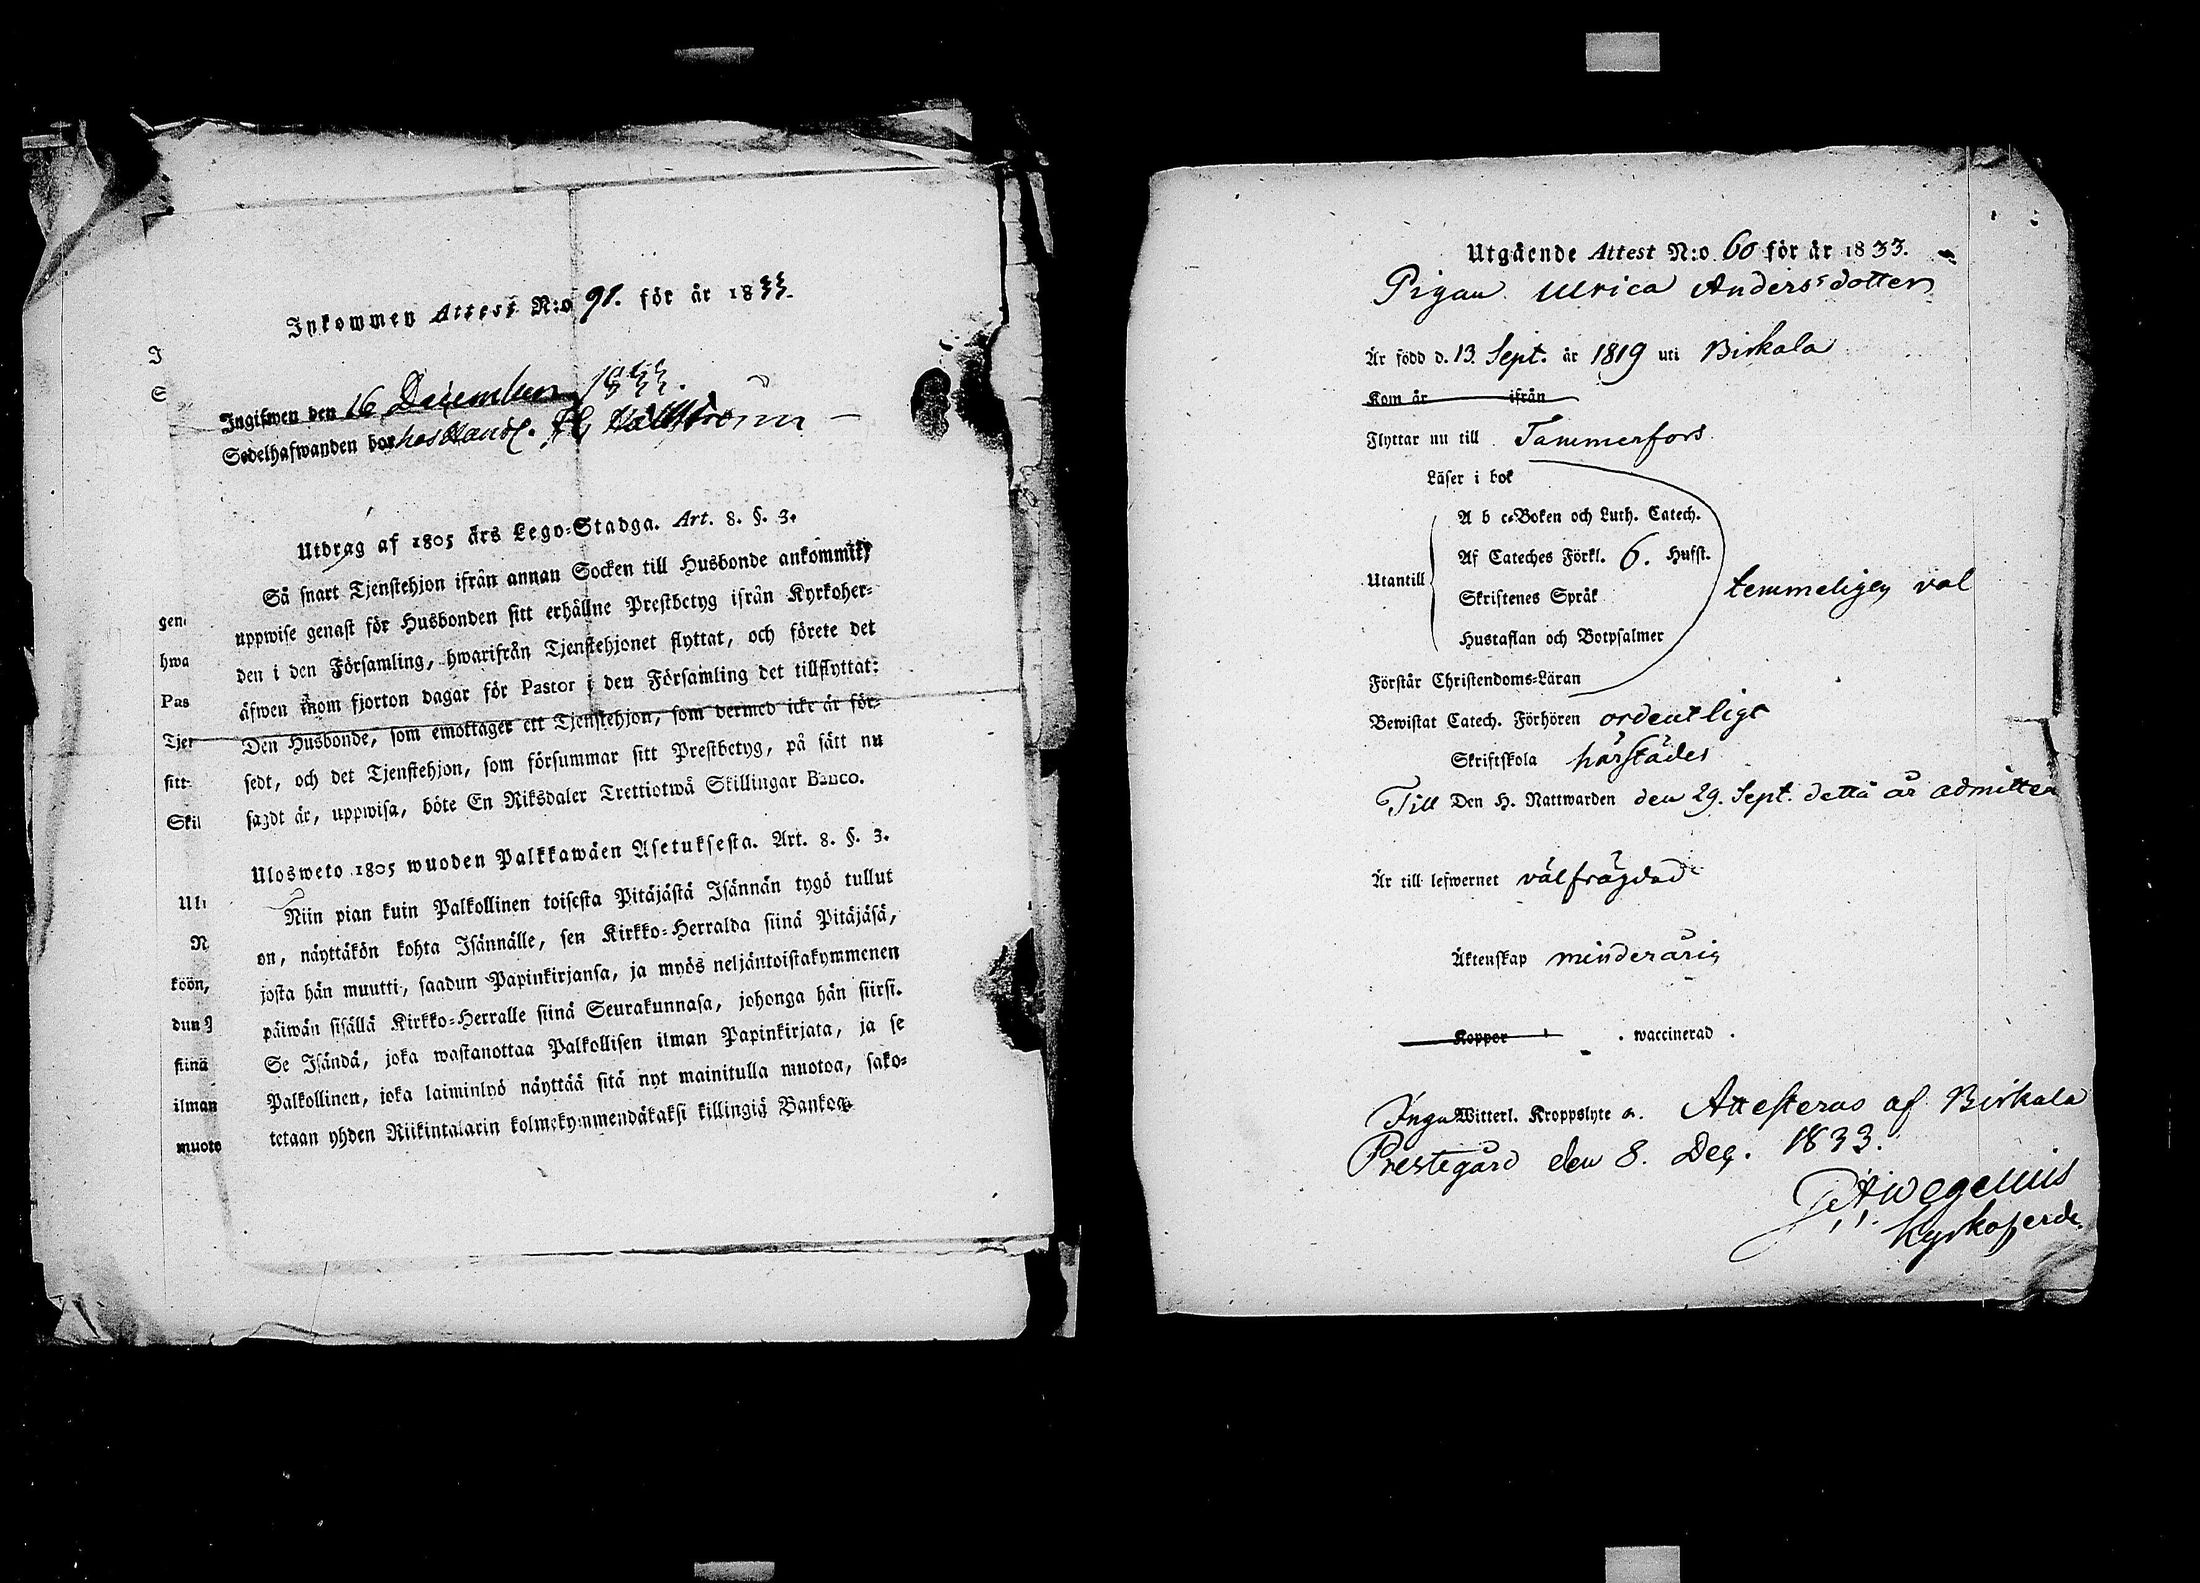 Inkommen Attest N:o 91. för år 1833.
Ingifwen den 16 December 1833.
Sedelhafwanden bor hos Handl. Hällström
Utdrag af 1805 års Lego-Stadga. Art. 8. §. 3.
Så snart Tjenstehjon ifrån annan Socken till Husbonde ankommit,
uppwise genast för Husbonden sitt erhållne Prestbetyg ifrån Kyrkoher-
den i den Församling, hwarifrån Tjenstehjonet flyttat, och förete det
äfwen inom fjorton dagar för Pastor i den Församling det tillflyttat:
Den Husbonde, som emottager ett Tjenstehjon, som dermed icke är för-
sedt, och det Tjenstehjon, som försummar sitt Prestbetyg, på sätt nu
sagdt är, uppwisa, böte En Riksdaler Trettiotwå Skillingar Banco.
Ulosweto 1805 wuoden Palkkawäen Asetuksesta. Art. 8. §. 3.
Niin pian kuin Palkollinen toisesta Pitäjästä Isännän tygö tullut
on, näyttäkön kohta Isännälle, sen Kirkko-Herralda siinä Pitäjäsä,
josta hän muutti, saadun Papinkirjansa, ja myös neljäntoistakymmenen
päiwän sisällä Kirkko-Herralle siinä Seurakunnasa, johonga hän siirsi.
Se Isändä, joka wastanottaa Palkollisen ilman Papinkirjata, ja se
Palkollinen, joka laiminlyö näyttää sitä nyt mainitulla muotoa, sako-
tetaan yhden Riikintalarin kolmekymmendäkaksi killingiä Bankoa.
I
S
gen
hwa
Pas
Tjer
sitt
Skil
Ul
N
köön,
dun
siinä
ilman
muoto
Utgående Attest N:o 60 för år 1833.
Pigan Ulrica Andersdotter
Är född d. 13 Sept. år 1819 uti Birkala
Kom år ifrån
Flyttar nu till Tammerfors
Läser i bok
A b c-Boken och Luth. Catech.
Af Cateches Förkl. 6. Hufst.
Utantill
Skriftenes Språk
temmeligen väl
Hustaflan och Botpsalmer
Förstår Christendoms-Läran
Bewistat Catech. Förhören ordentligt
Skriftskola härstädes
Till Den H. Nattwarden den 29. Sept. detta år admitter
Är till lefwernet välfrägdad
Äktenskap minderårig
Koppor . waccinerad .
Inga Witterl. Kroppslyte n. Attesteras af Birkala
Prestegård den 8. Dec. 1833.
Wegelius
Kyrkoherde.